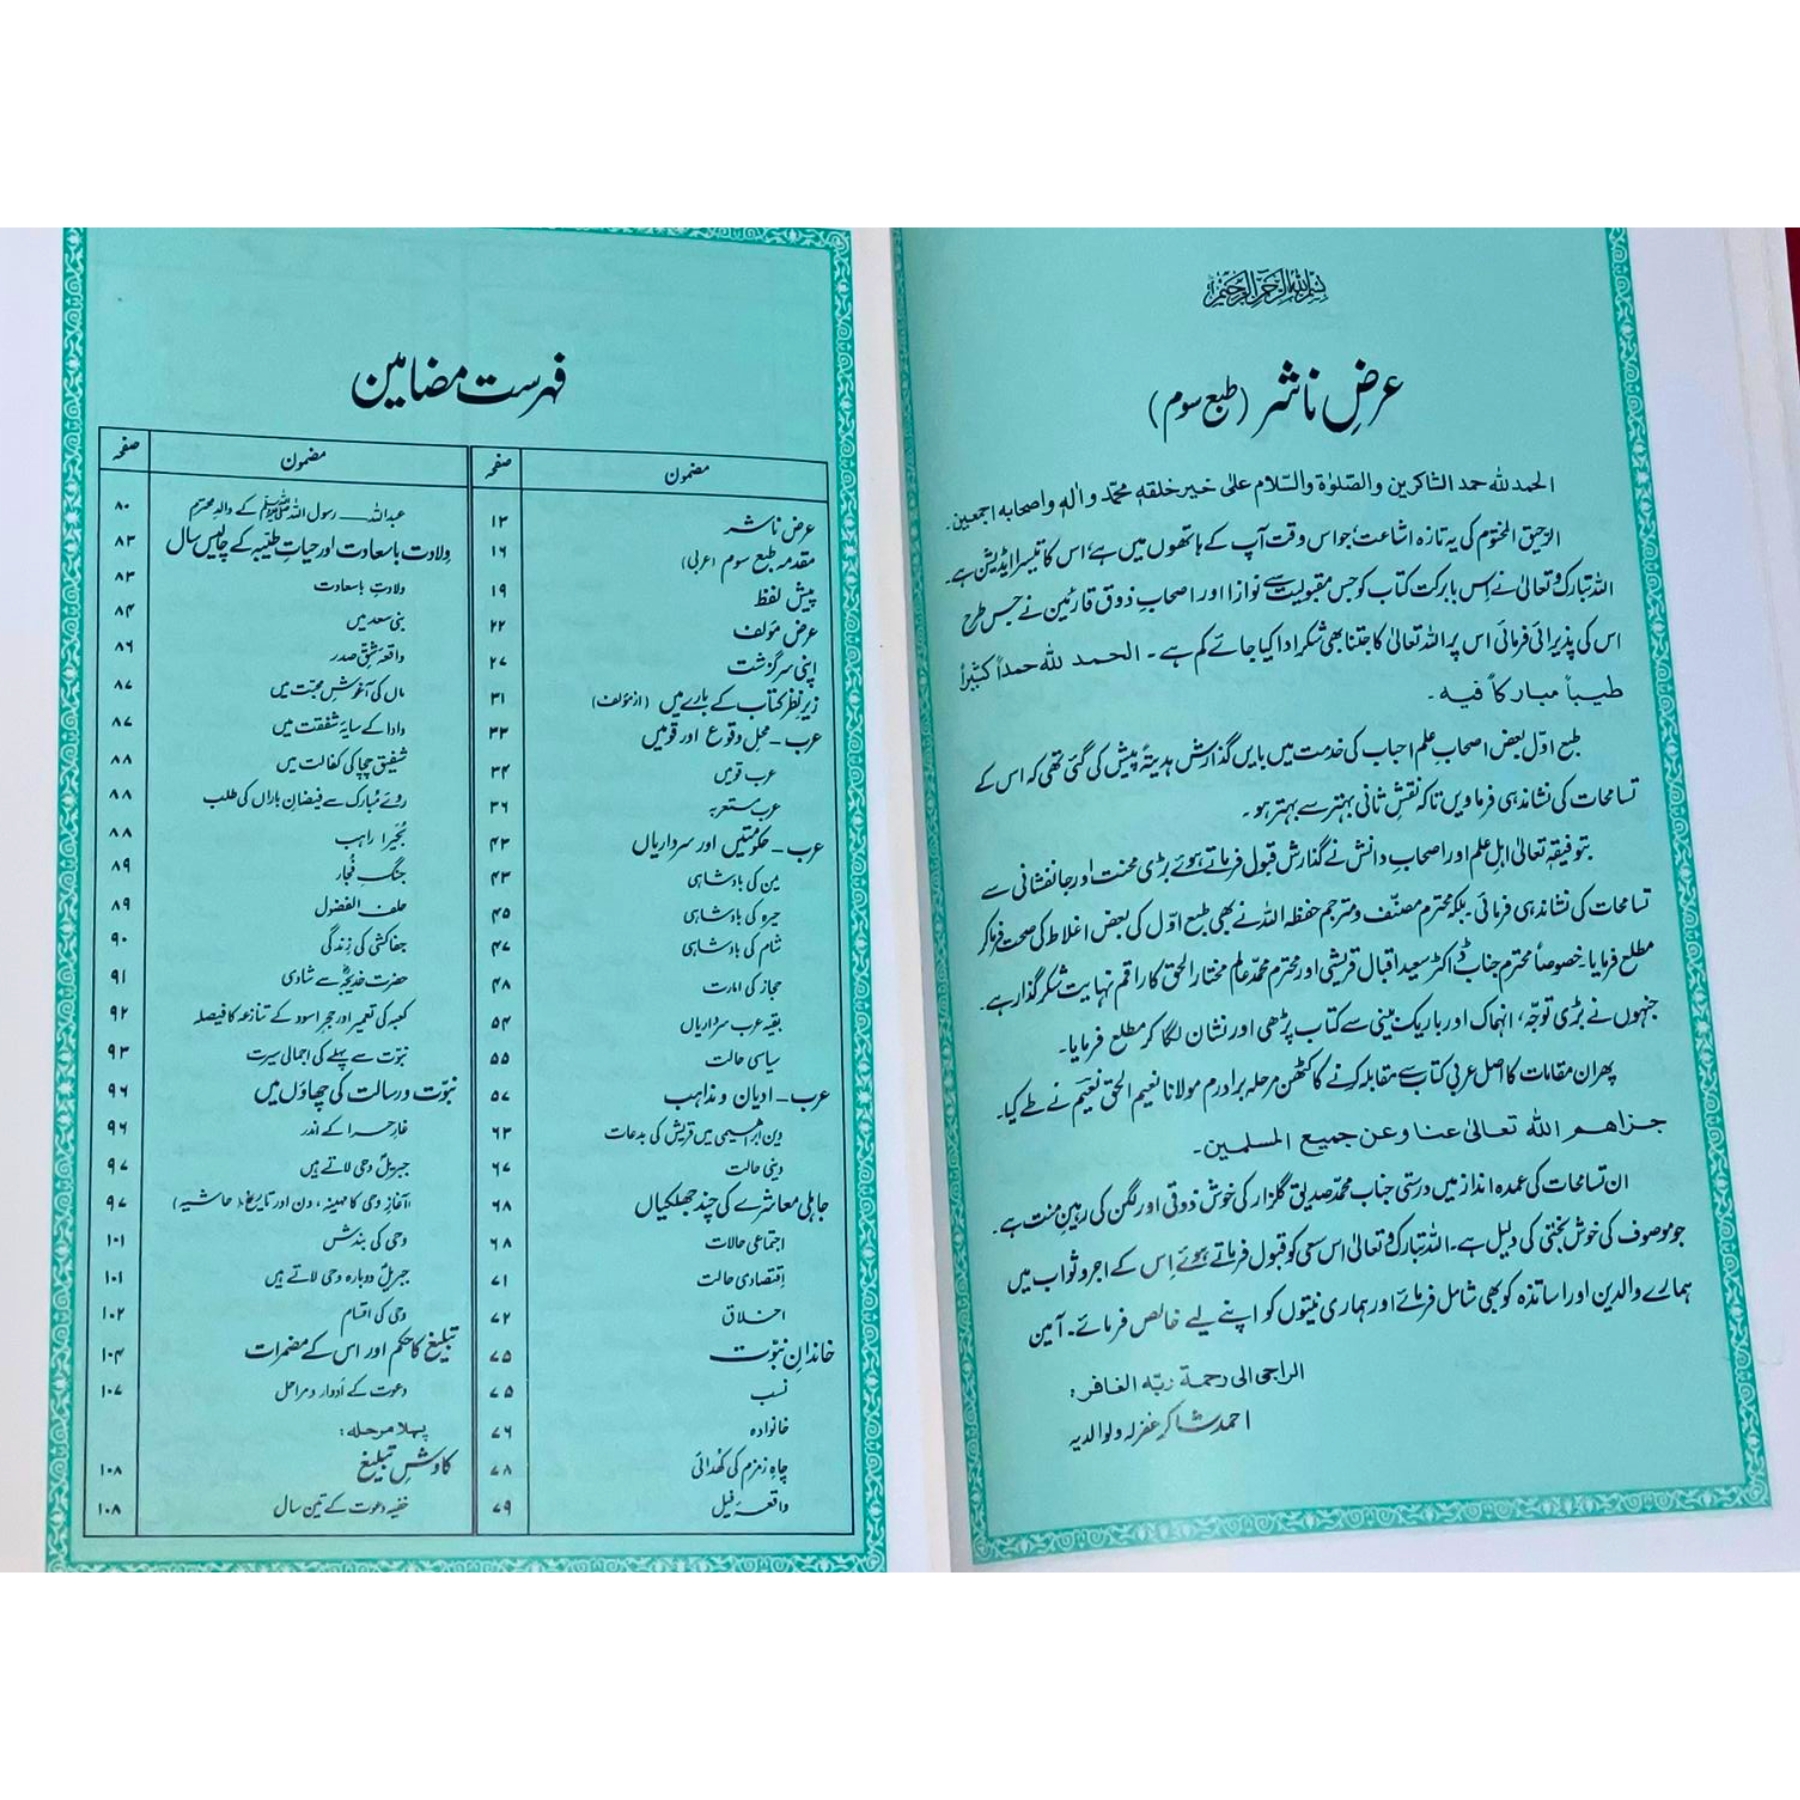 بسم اللہ الرحمن الرحیم
عرضِ ناشر (طبع سوم)
الحمد للہ حمد الشاکرین والصّلوٰۃ والسّلام علیٰ خیر خلقہٖ محمّد و اٰلہٖ و اصحابہ اجمعین۔
الرّحیق المختوم کی یہ تازہ اشاعت، جو اس وقت آپ کے ہاتھوں میں ہے، اس کا تیسرا ایڈیشن ہے۔
اللہ تبارک و تعالیٰ نے اِس بابرکت کتاب کو جس مقبولیت سے نوازا اور اصحابِ ذوق قارئین نے جس طرح
اس کی پذیرائی فرمائی اس پر اللہ تعالیٰ کا جتنا بھی شکر ادا کیا جائے کم ہے۔ الحمد للہ حمداً کثیراً
طیباً مبارکاً فیہ۔
طبع اوّل بعض اصحابِ علم احباب کی خدمت میں بایں گذارش ہدیۃً پیش کی گئی تھی کہ اس کے
تسامحات کی نشاندہی فرما دیں تاکہ نقشِ ثانی بہتر سے بہتر ہو۔
بتوفیقہٖ تعالیٰ اہلِ علم اور اصحابِ دانش نے گذارش قبول فرماتے ہوئے بڑی محنت اور جانفشانی سے
تسامحات کی نشاندہی فرمائی۔ بلکہ محترم مصنّف و مترجم حفظہ اللہ نے بھی طبع اوّل کی بعض اغلاط کی صحت فرما کر
مطلع فرمایا۔ خصوصاً محترم جناب ڈاکٹر سعید اقبال قریشی اور محترم محمّد عالم مختار الحق کا راقم نہایت شکر گذار ہے۔
جنہوں نے بڑی توجّہ، انہماک اور باریک بینی سے کتاب پڑھی اور نشان لگا کر مطلع فرمایا۔
پھر ان مقامات کا اصل عربی کتاب سے مقابلہ کرنے کا کٹھن مرحلہ برادرم مولانا نعیم الحق نعیم نے طے کیا۔
جزاھم اللہ تعالیٰ عنا و عن جمیع المسلمین۔
ان تسامحات کی عمدہ انداز میں درستی جناب محمّد صدیق گلزار کی خوش ذوقی اور لگن کی رہینِ منت ہے۔
جو موصوف کی خوش بختی کی دلیل ہے۔ اللہ تبارک و تعالیٰ اس سعی کو قبول فرماتے ہوئے اِس کے اجر و ثواب میں
ہمارے والدین اور اساتذہ کو بھی شامل فرمائے اور ہماری نیتوں کو اپنے لیے خالص فرمائے۔ آمین
الراجی الی رحمۃ ربّہ الغافر:
احمد شاکر غفرلہ ولوالدیہ
فہرست مضامین
مضمون صفحہ
عرض ناشر ۱۳
مقدمہ طبع سوم (عربی) ۱۶
پیش لفظ ۱۹
عرض مؤلف ۲۲
اپنی سرگزشت ۲۷
زیرِ نظر کتاب کے بارے میں (از مؤلف) ۳۱
عرب - محل وقوع اور قومیں ۳۳
عرب قومیں ۳۴
عرب مستعربہ ۳۶
عرب - حکومتیں اور سرداریاں ۴۳
یمن کی بادشاہی ۴۳
حیرہ کی بادشاہی ۴۵
شام کی بادشاہی ۴۷
حجاز کی امارت ۴۸
بقیہ عرب سرداریاں ۵۴
سیاسی حالت ۵۵
عرب - ادیان و مذاہب ۵۷
دین ابراہیمی میں قریش کی بدعات ۶۳
دینی حالت ۶۷
جاہلی معاشرے کی چند جھلکیاں ۶۸
اجتماعی حالات ۶۸
اقتصادی حالت ۷۱
اخلاق ۷۲
خاندانِ نبوّت ۷۵
نسب ۷۵
خانوادہ ۷۶
چاہِ زمزم کی کھدائی ۷۸
واقعۂ فیل ۷۹
مضمون صفحہ
عبداللہ ــــ رسول اللہ ﷺ کے والدِ محترم ۸۰
ولادت باسعادت اور حیاتِ طیّبہ کے چالیس سال ۸۳
ولادت باسعادت ۸۳
بنی سعد میں ۸۴
واقعہ شقِ صدر ۸۶
ماں کی آغوشِ محبّت میں ۸۷
دادا کے سایۂ شفقت میں ۸۷
شفیق چچا کی کفالت میں ۸۸
روئے مُبارک سے فیضانِ باراں کی طلب ۸۸
بُحَیرا راہب ۸۸
جنگِ فُجّار ۸۹
حلف الفضول ۸۹
جفاکشی کی زندگی ۹۰
حضرت خدیجہؓ سے شادی ۹۱
کعبہ کی تعمیر اور حجرِ اسود کے تنازعہ کا فیصلہ ۹۲
نبوّت سے پہلے کی اجمالی سیرت ۹۳
نبوّت و رسالت کی چھاؤں میں ۹۶
غارِ حرا کے اندر ۹۶
جبریلؑ وحی لاتے ہیں ۹۷
(آغازِ وحی کا مہینہ، دن اور تاریخ (حاشیہ) ۹۷
وحی کی بندش ۱۰۱
جبریلؑ دوبارہ وحی لاتے ہیں ۱۰۱
وحی کی اقسام ۱۰۲
تبلیغ کا حکم اور اس کے مضمرات ۱۰۴
دعوت کے اَدوار و مراحل ۱۰۷
پہلا مرحلہ:
کاوشِ تبلیغ ۱۰۸
خفیہ دعوت کے تین سال ۱۰۸